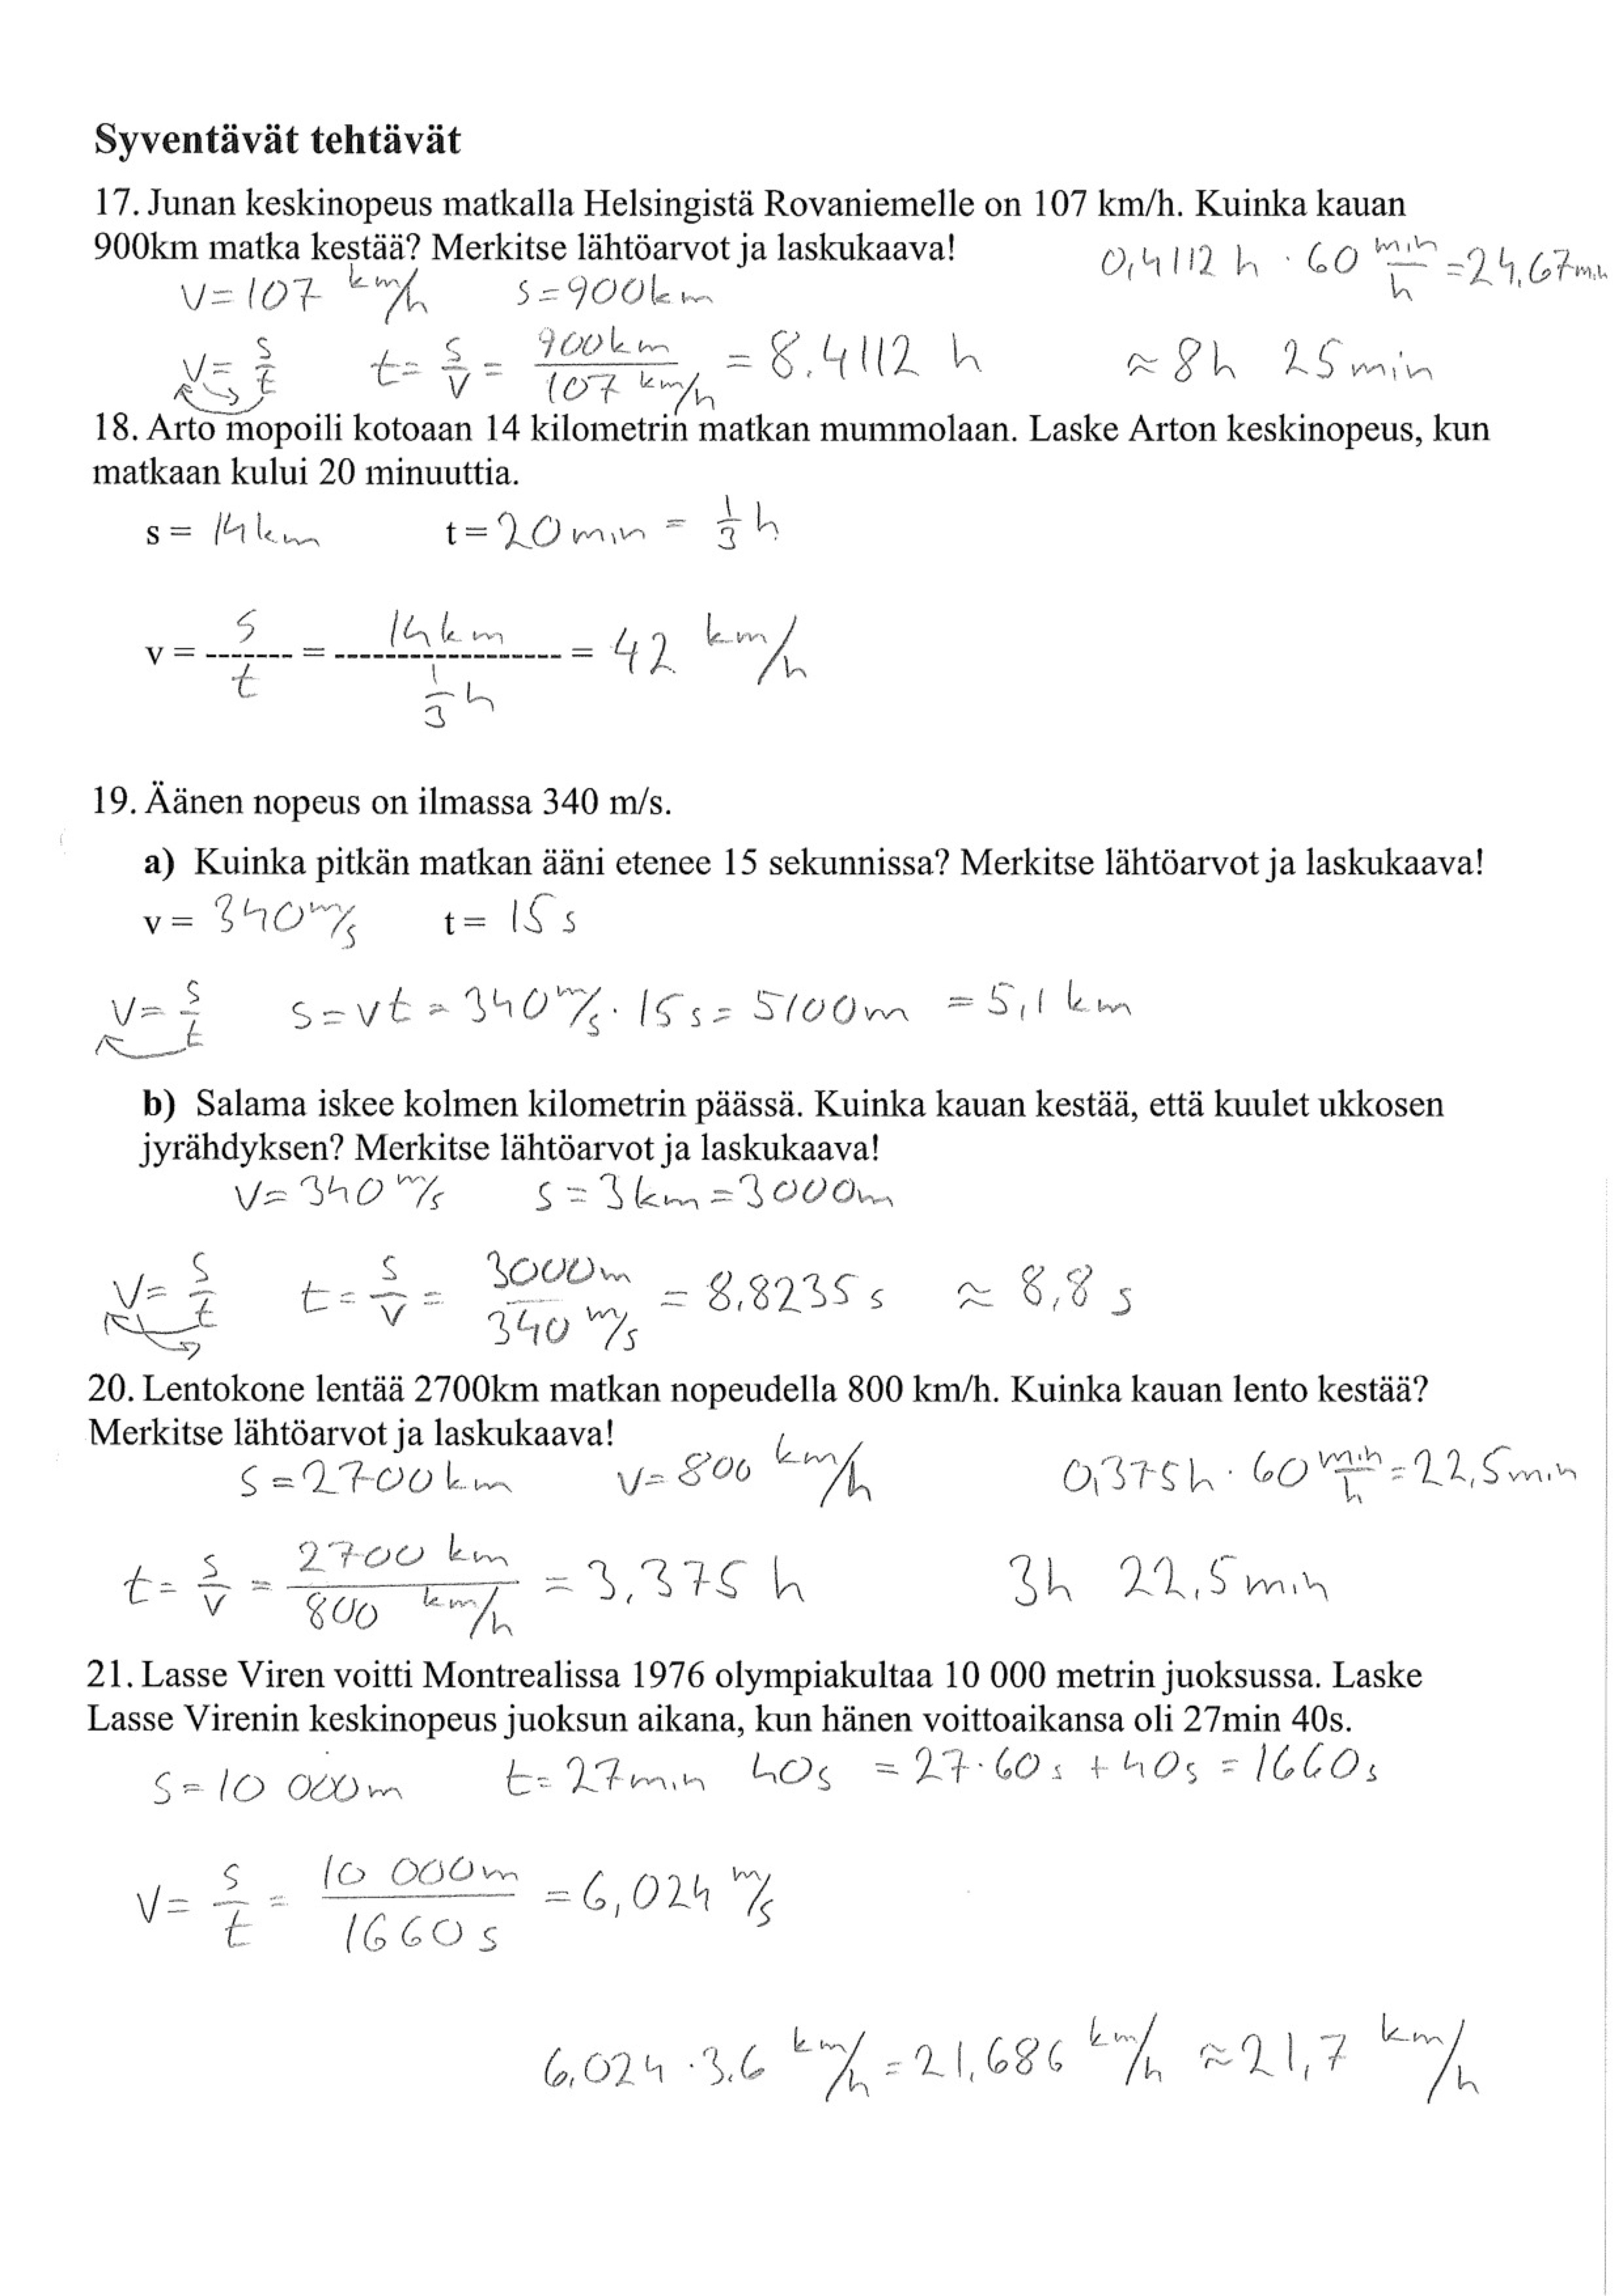 Syventävät tehtävät
17. Junan keskinopeus matkalla Helsingistä Rovaniemelle on 107 km/h. Kuinka kauan
900km matka kestää? Merkitse lähtöarvot ja laskukaava!
0,4112 h · 60 min/h = 24,67 min
v = 107 km/h s = 900km
v = s/t t = s/v = 900km / 107 km/h = 8,4112 h ≈ 8h 25min
18. Arto mopoili kotoaan 14 kilometrin matkan mummolaan. Laske Arton keskinopeus, kun
matkaan kului 20 minuuttia.
s = 14km t = 20min = 1/3 h
v = s/t = 14km / 1/3 h = 42 km/h
19. Äänen nopeus on ilmassa 340 m/s.
a) Kuinka pitkän matkan ääni etenee 15 sekunnissa? Merkitse lähtöarvot ja laskukaava!
v = 340 m/s t = 15 s
v = s/t s = vt = 340 m/s · 15 s = 5100m = 5,1 km
b) Salama iskee kolmen kilometrin päässä. Kuinka kauan kestää, että kuulet ukkosen
jyrähdyksen? Merkitse lähtöarvot ja laskukaava!
v = 340 m/s s = 3km = 3000m
v = s/t t = s/v = 3000m / 340 m/s = 8,8235 s ≈ 8,8 s
20. Lentokone lentää 2700km matkan nopeudella 800 km/h. Kuinka kauan lento kestää?
Merkitse lähtöarvot ja laskukaava!
s = 2700km v = 800 km/h 0,375h · 60 min/h = 22,5min
t = s/v = 2700 km / 800 km/h = 3,375 h 3h 22,5min
21. Lasse Viren voitti Montrealissa 1976 olympiakultaa 10 000 metrin juoksussa. Laske
Lasse Virenin keskinopeus juoksun aikana, kun hänen voittoaikansa oli 27min 40s.
s = 10 000m t = 27min 40s = 27·60s + 40s = 1660s
v = s/t = 10 000m / 1660 s = 6,024 m/s
6,024 · 3,6 km/h = 21,686 km/h ≈ 21,7 km/h